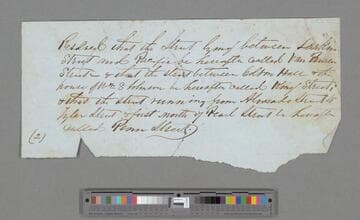 Resolved that the Street lying between Larkin
Street and Pacific be hereafter called Van Buren
Street & that the street between Colton Hall & the
house of Wm S Johnson be hereafter called King Street
& that the street running from Alvarado Street to
Tyler Street & first north of Pearl Street be hereafter
called Bonn Street.
(2)